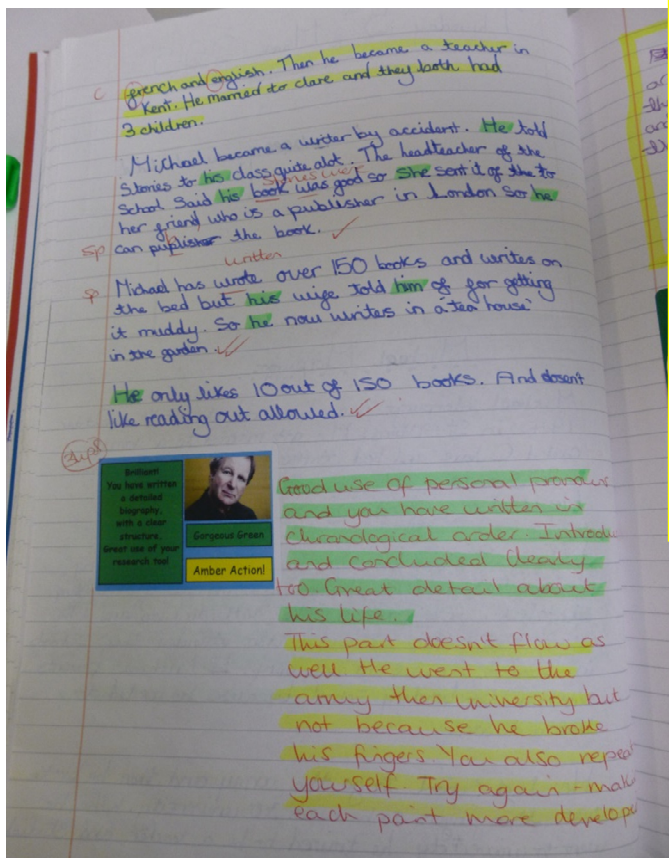 c french and english. Then he became a teacher in
Kent. He married to clare and they both had
3 children.
Michael became a writer by accident. He told
Stories to his class quite alot. The headteacher of the
stories wer
School Said his book was good so She sent it of the to
her friend, who is a publisher in London So he
sp can publisher the book.
written
sp Michael has wrote over 150 books and writes on
the bed but his wife told him of for getting
it muddy. So he now writes in a 'tea house'
in the garden.
He only likes 10 out of 150 books. And dosen't
like reading out allowed.
Brilliant!
You have written
a detailed
biography,
with a clear
structure.
Great use of your
research too!
Gorgeous Green
Amber Action!
Good use of personal pronouns
and you have written in
chronological order. Introdu
and concluded clearly
too. Great detail about
his life.
This part doesn't flow as
well He went to the
army then University but
not because he broke
his fingers. You also repea
yourself. Try again - mak
each part more develope